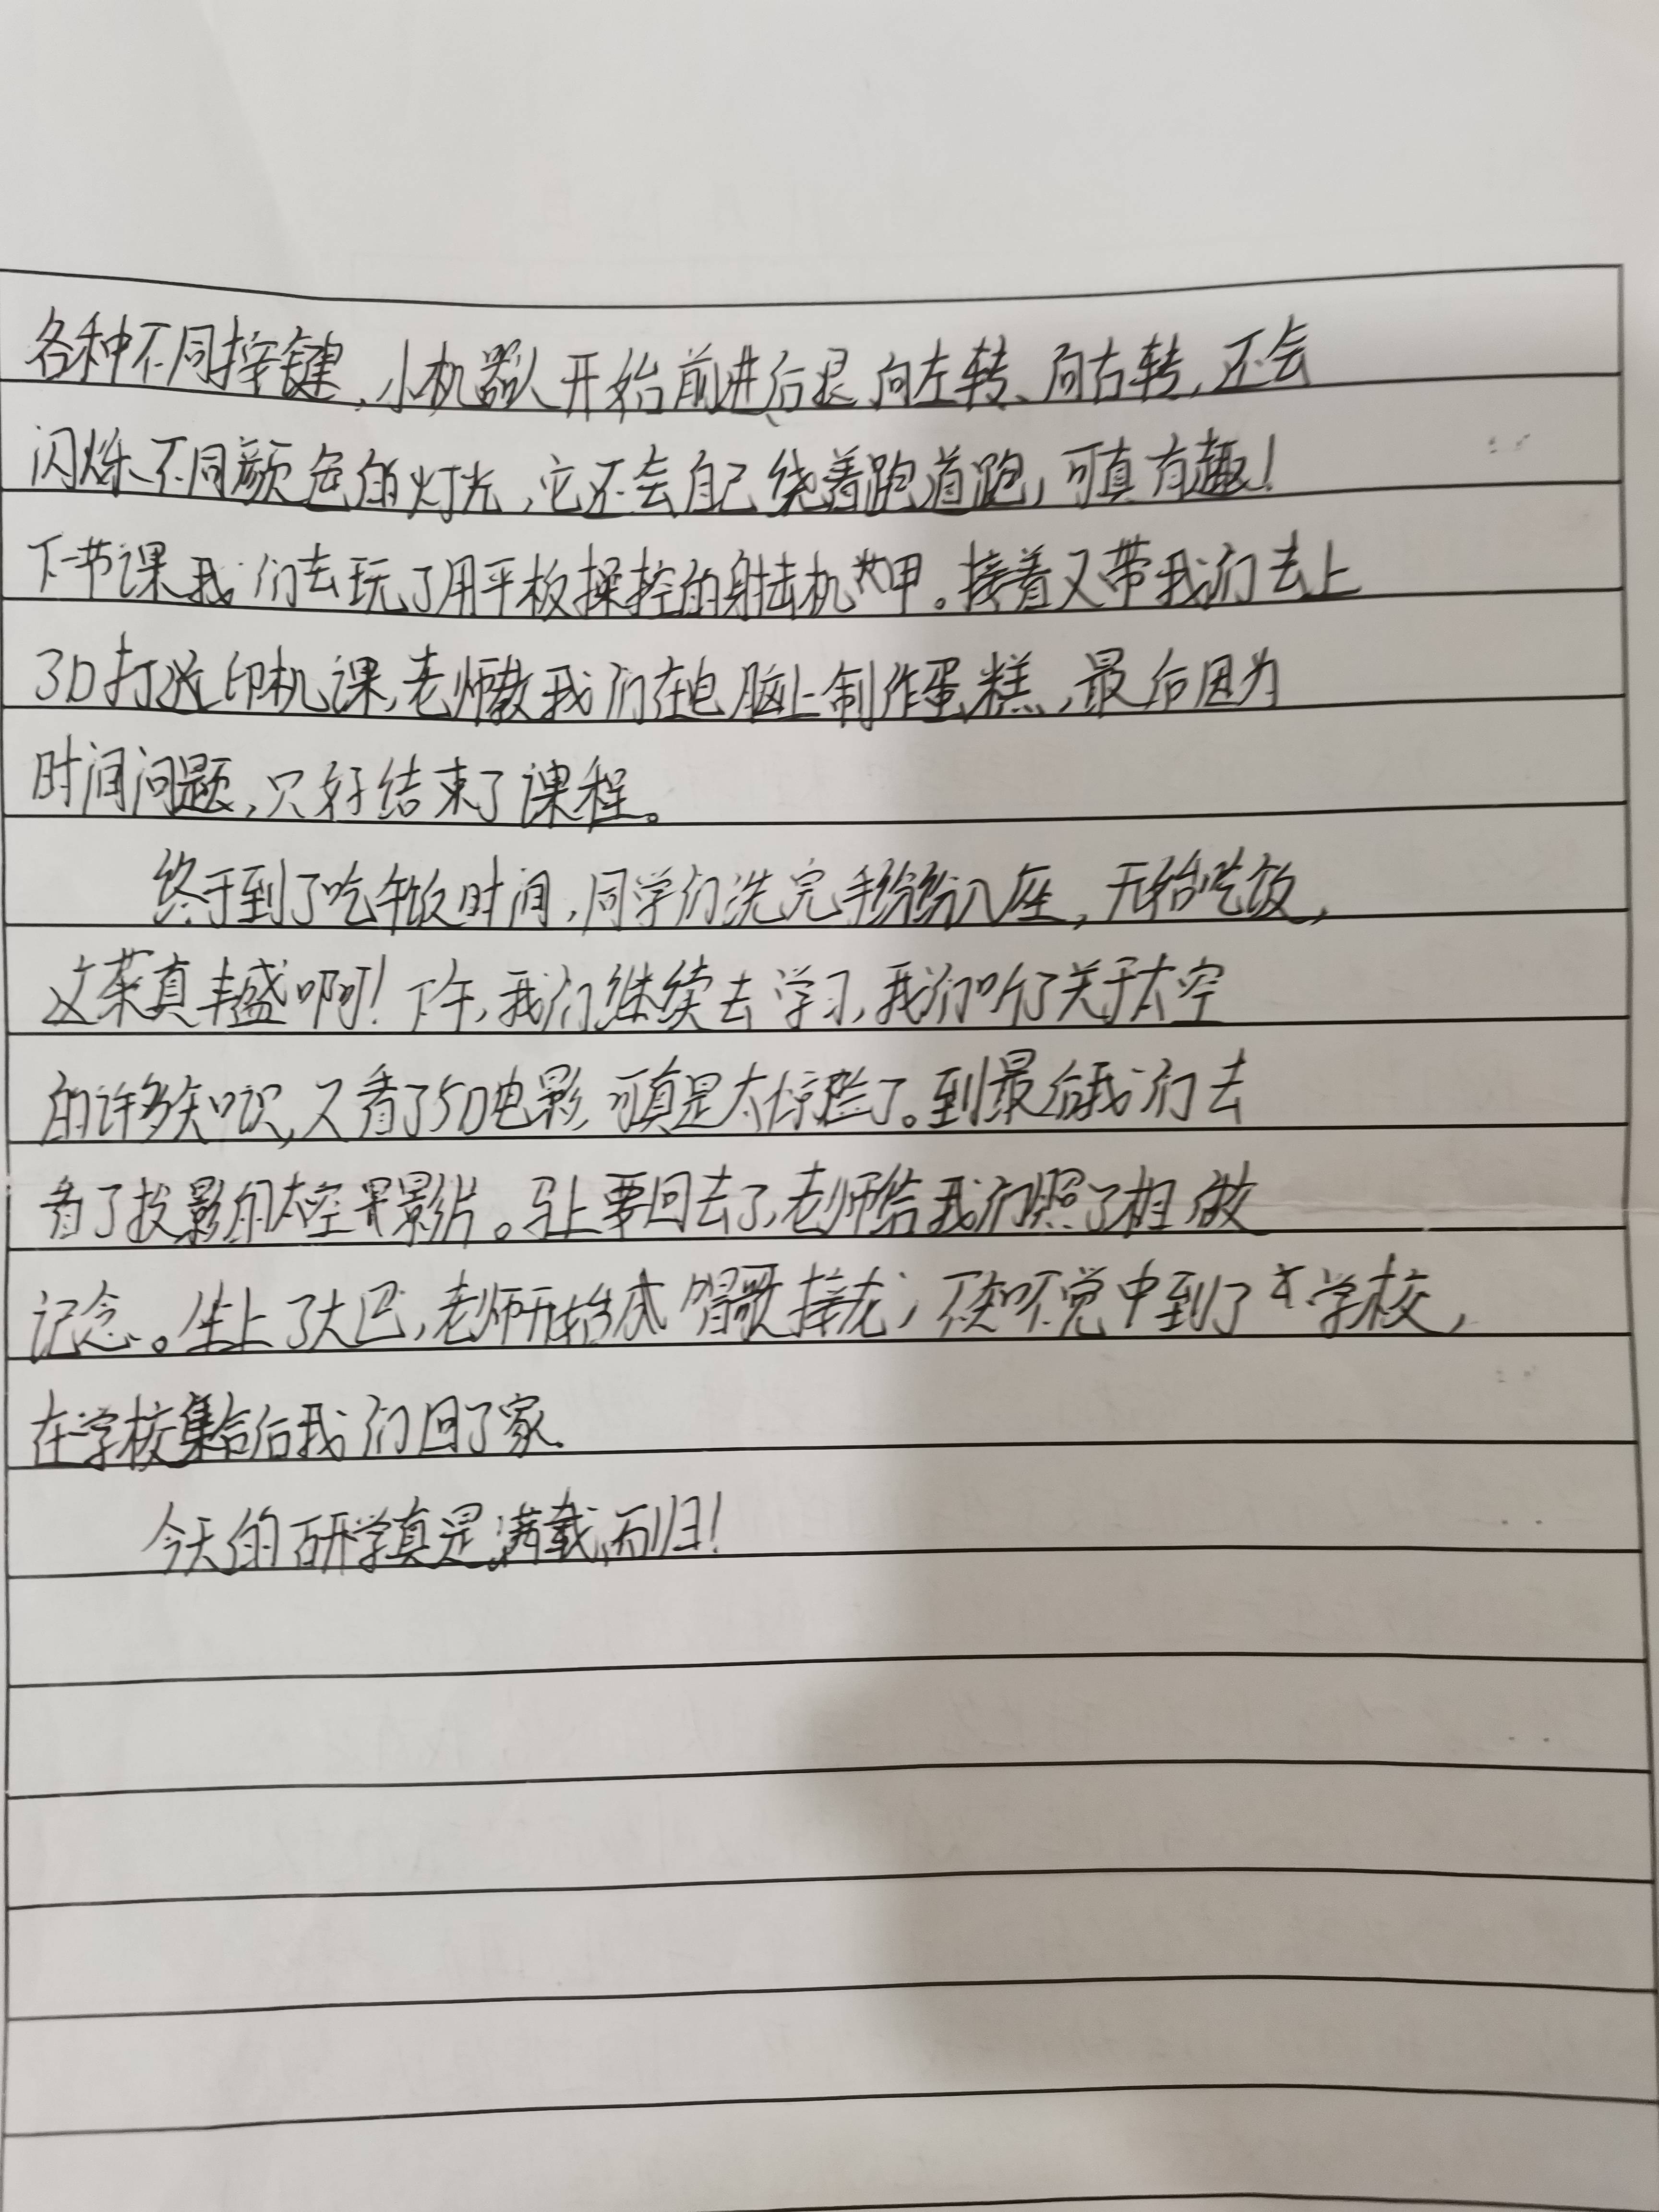 各种不同按键,小机器人开始前进、后退、向左转、向右转,还会
闪烁不同颜色的灯光,它还会自己绕着跑道跑,可真有趣!
下一节课我们去玩了用平板操控的射击机甲。接着又带我们去上
3D打印机课,老师教我们在电脑上制作蛋糕,最后因为
时间问题,只好结束了课程。
终于到了吃午饭时间,同学们洗完手纷纷入座,开始吃饭,
这菜真丰盛啊!下午,我们继续去学习,我们听了关于太空
的许多知识,又看了5D电影,可真是太惊险了。到最后我们去
看了投影的太空影片。马上要回去了,老师给我们照了相做
记念。坐上了大巴,老师开始唱歌接龙,不知不觉中到了学校,
在学校集合后我们回了家.
今天的研学真是满载而归!